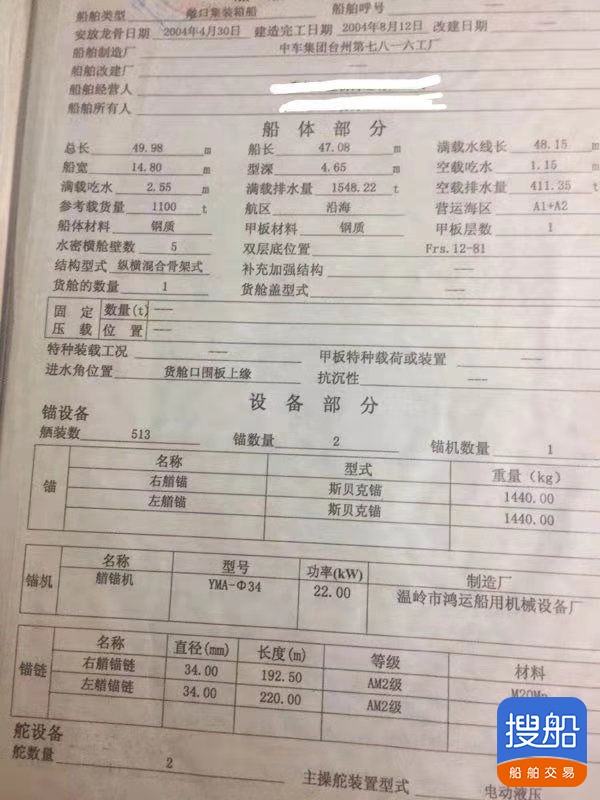 船舶类型 敞口集装箱船 船舶呼号
安放龙骨日期 2004年4月30日 建造完工日期 2004年8月12日 改建日期
船舶制造厂 中车集团台州第七八一六工厂
船舶改建厂
船舶经营人
船舶所有人
船体部分
总长 49.98 m 船长 47.08 m 满载水线长 48.15 m
船宽 14.80 m 型深 4.65 m 空载吃水 1.15 m
满载吃水 2.55 m 满载排水量 1548.22 t 空载排水量 411.35 t
参考载货量 1100 t 航区 沿海 营运海区 A1+A2
船体材料 钢质 甲板材料 钢质 甲板层数 1
水密横舱壁数 5 双层底位置 Frs.12-81
结构型式 纵横混合骨架式 补充加强结构 ---
货舱的数量 1 货舱盖型式 ---
固定压载 数量(t) ---
位置 ---
特种装载工况 --- 甲板特种载荷或装置 ---
进水角位置 货舱口围板上缘 抗沉性 ---
设备部分
锚设备
舾装数 513 锚数量 2 锚机数量 1
锚 名称 型式 重量（kg）
右艏锚 斯贝克锚 1440.00
左艏锚 斯贝克锚 1440.00
锚机 名称 型号 功率(kW) 制造厂
艏锚机 YMA-Φ34 22.00 温岭市鸿运船用机械设备厂
锚链 名称 直径(mm) 长度(m) 等级 材料
右艏锚链 34.00 192.50 AM2级
左艏锚链 34.00 220.00 AM2级
舵设备
舵数量 2 主操舵装置型式 电动液压
搜船
船舶交易